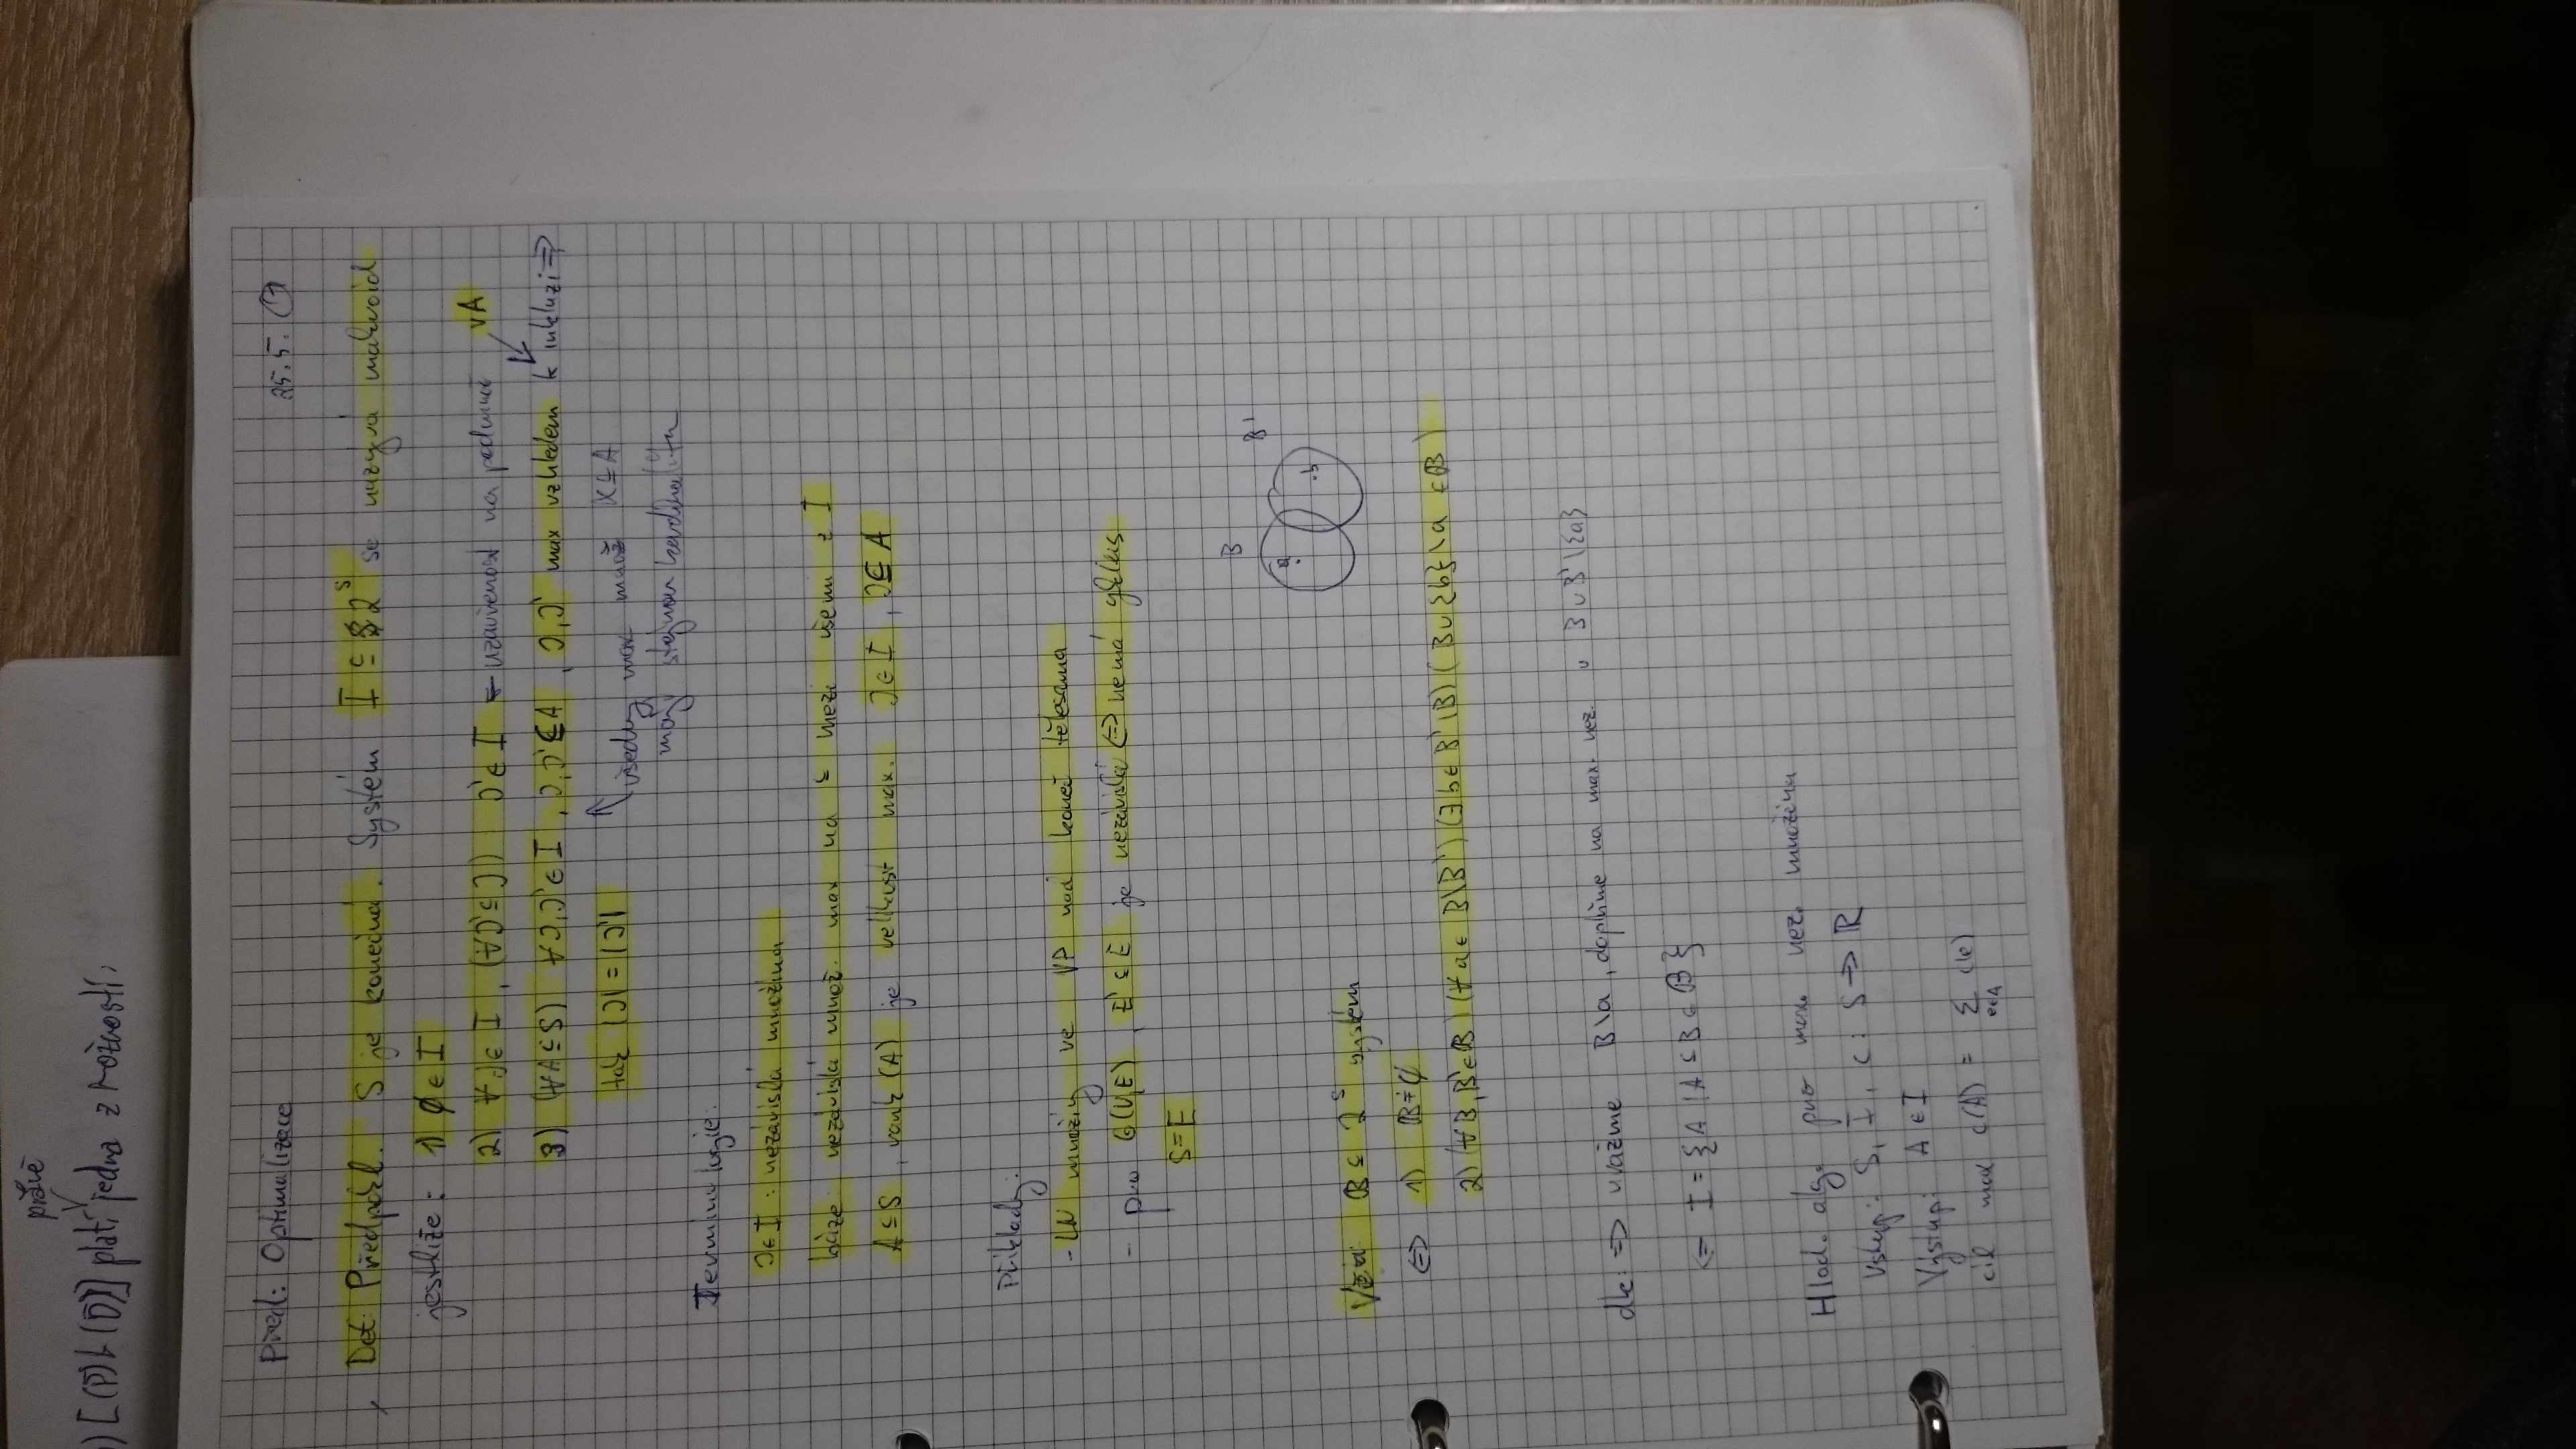 právě
) [(P) ⊦ (D)] platí jedna z možností,
Před: Optimalizace 25.5. ⑦
Def: Předpokl. S je konečná. Systém I ⊆ 2^S se nazývá matroid
jestliže: 1) ∅ ∈ I
2) ∀J ∈ I, (∀J' ⊆ J) J' ∈ I - uzavřenost na podmn. v A
3) (∀A ⊆ S) ∀J,J' ∈ I, J,J' ⊆ A, J,J' max vzhledem k inkluzi ⇒
tak |J| = |J'| všechny max množ X ⊆ A
mají stejnou kardinalitu
Terminologie:
J ∈ I: nezávislá množina
báze: nezávislá množ. max na ⊆ mezi všemi z I
A ⊆ S, rank (A) je velikost max. J ∈ I, J ⊆ A
Příklady:
- LN množiny ve VP nad koneč tělesama
- pro G(V,E), E' ⊆ E je nezávislá ⇔ nemá cyklus
S = E
B B'
a b
Věta: B ⊆ 2^S systém
⇔ 1) B ≠ ∅
2) (∀B,B' ∈ B) (∀a ∈ B\B') (∃b ∈ B'\B) (B ∪ {b}\a ∈ B)
dk: ⇒ uvážme B\a, doplníme na max. nez. v B ∪ B'\{a}
⇐ I = {A | A ⊆ B ∈ B}
Hlad. alg. pro max nez. množinu
Vstup: S, I, c: S → ℝ
Výstup: A ∈ I
cíl max c(A) = Σ_{e∈A} c(e)